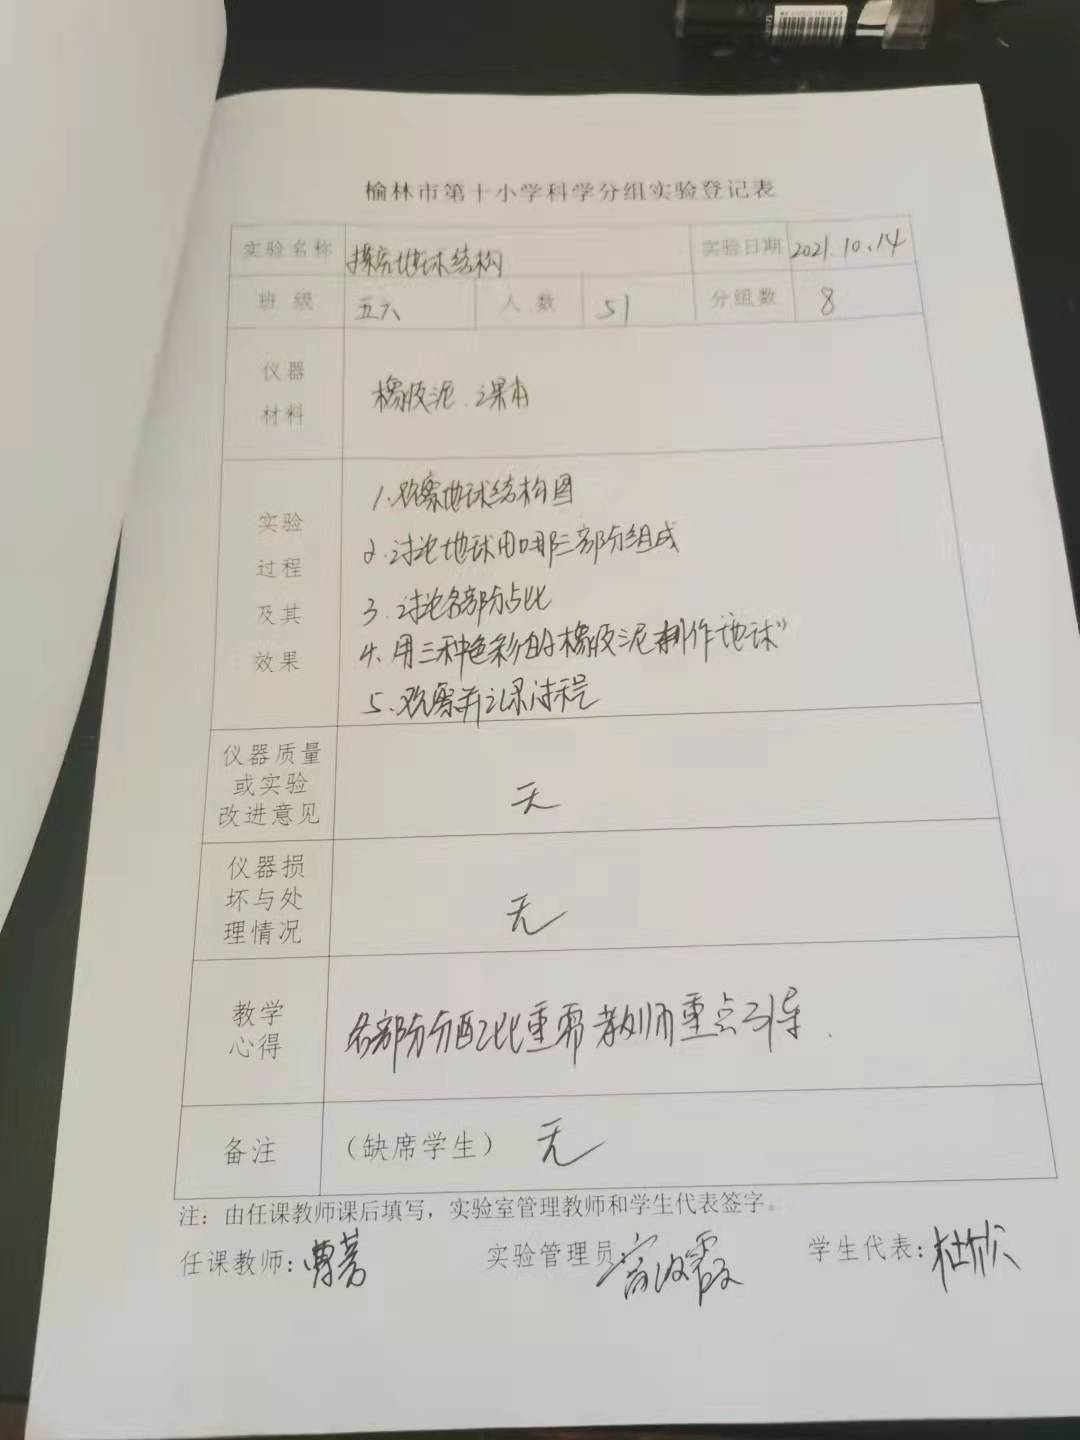 榆林市第十小学科学分组实验登记表
实验名称 探究地球结构 实验日期 2021.10.14
班级 五六 人数 51 分组数 8
仪器
材料
橡皮泥、课本
实验
过程
及其
效果
1.观察地球结构图
2.讨论地球由哪三部分组成
3.讨论各部分占比
4.用三种色彩的橡皮泥制作“地球”
5.观察并记录过程
仪器质量
或实验
改进意见
无
仪器损
坏与处
理情况
无
教学
心得
各部分分配比重需教师重点引导.
备注 (缺席学生) 无
注：由任课教师课后填写，实验室管理教师和学生代表签字。
任课教师:曹芳 实验管理员: 霞 学生代表:杜欣